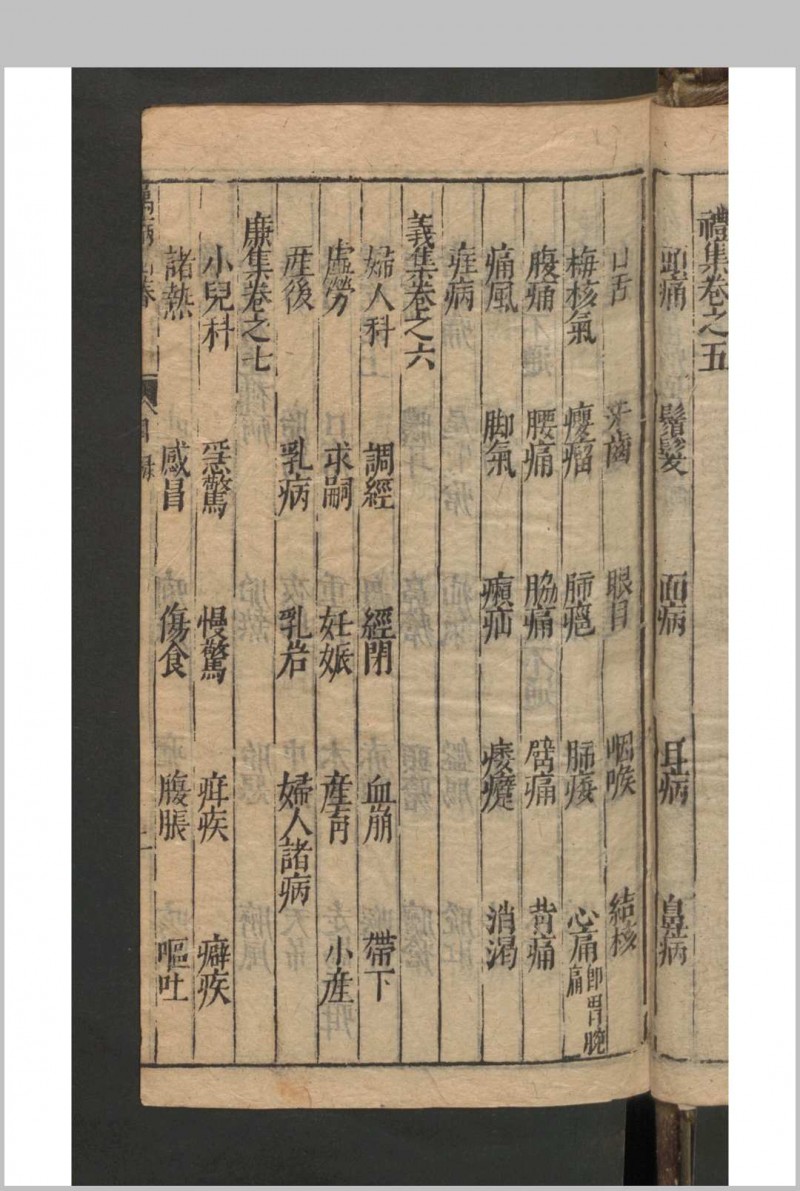 禮集卷之五
頭痛 鬚髮 面病 耳病 鼻病
口舌 牙齒 眼目 咽喉 結核
梅核氣 癭瘤 肺癰 肺痿 心痛 即胃脘痛
腹痛 腰痛 脇痛 臂痛 背痛
痛風 脚氣 㿗疝 痿躄 消渴
痓病
義集卷之六
婦人科 調經 經閉 血崩 帶下
虛勞 求嗣 妊娠 產育 小產
產後 乳病 乳岩 婦人諸病
廉集卷之七
小兒科 急驚 慢驚 疳疾 癖疾
諸熱 感冒 傷食 腹脹 嘔吐
萬病回春 目錄 二